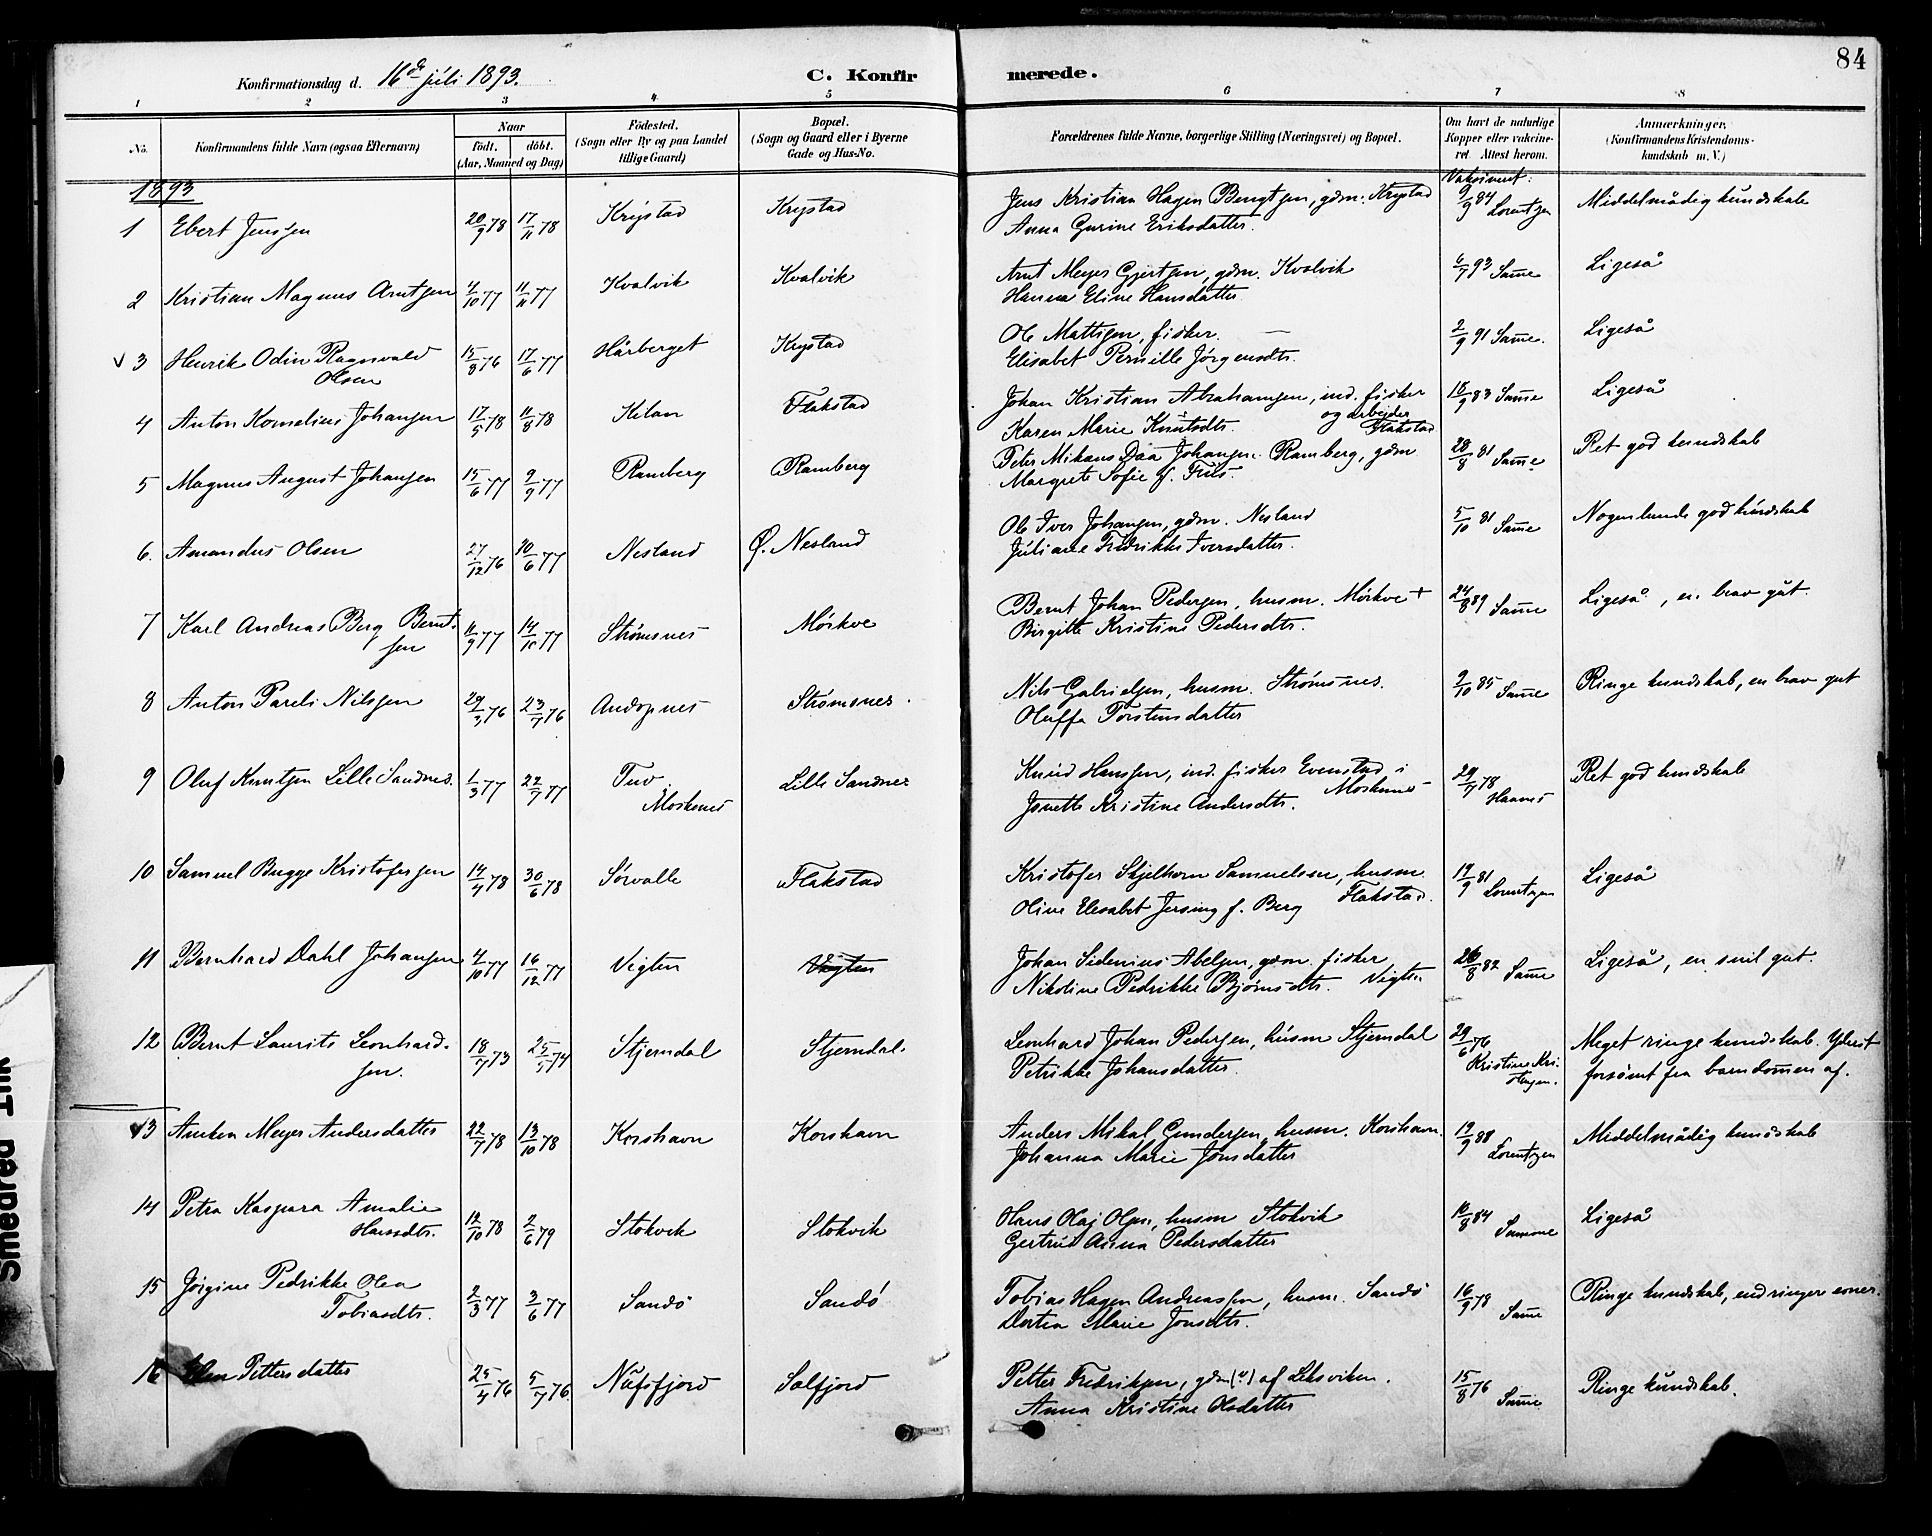 84
Konfirmationsdag d. 16de júli 1893.
C. Konfirmerede.
1 2 3 4 5 6 7 8
No. Konfirmandens fulde Navn (ogsaa Efternavn)
Naar
födt. döbt.
(Aar, Maaned og Dag)
Födested.
(Sogn eller By og paa Landet
tillige Gaard)
Bopæl.
(Sogn og Gaard eller i Byerne
Gade og Hus-No.
Forældrenes fulde Navne, borgerlige Stilling (Næringsvei) og Bopæl.
Om havt de naturlige
Kopper eller vakcine-
ret. Attest herom.
Anmærkninger.
(Konfirmandens Kristendoms-
kundskab m. V.)
1893
Vaksineret:
1 Ebert Jenssen 20/9 78 17/11 78 Krystad Krystad Jens Kristian Hagen Bengtsen, gdm. Krystad 9/9 84 Lorentzen Middelmådig kundskab
Anna Gurine Eriksdatter.
2 Kristian Magnus Arntsen 4/10 77 11/11 77 Kvalvik Kvalvik Arnt Meyer Gjertsen, gdm. Kvalvik 6/7 93 Samme Ligeså
Hanna Eline Hansdatter.
3 Henrik Odin Ragnvald 15/8 76 17/6 77 Hårberget Krystad Ole Mattisen, fisker. 2/9 91 Samme. Ligeså
Olsen Elisabet Pernille Jørgensdtr.
4 Anton Kornelius Johansen 17/5 78 11/8 78 Kilan Flakstad Johan Kristian Abrahamsen, ind. fisker 18/9 83 Samme Ligeså
og arbejder
Karen Marie Knutsdtr. Flakstad
5 Magnus August Johansen 15/6 77 9/9 77 Ramberg Ramberg Peter Mikaus Daa Johansen Ramberg, gdm 28/8 81 Samme Ret god kundskab
Margrete Sofie f. Friis.
6. Amandus Olsen 27/12 76 10/6 77 Nesland Ø. Nesland Ole Iver Johansen, gdm. Nesland 5/10 81 Samme Nogenlunde god kúndskab
Júliane Fredrikke Iversdatter.
7 Karl Andreas Berg Bernt- 11/9 77 14/10 77 Strømsnes Mørkve Bernt Johan Pedersen, husm. Mørkve + 24/8 89 Samme Ligeså, en brav gút.
sen Birgitte Kristine Pedersdtr.
8 Anton Pareli Nilssen 29/3 76 23/7 76 Andopnes Strømsnes. Nils Gabrielsen, husm. Strømsnes. 9/10 85 Samme Ringe kundskab, en brav gut
Oluffa Torstensdatter
9 Oluf Knutsen Lille Sandnes. 1/3 77 22/7 77 Tuv Lille Sandnes Knúd Hanssen, ind. fisker Evenstad i 29/7 78 Haanes Ret god kundskab
Moskenes Moskenes
Jonette Kristine Andersdtr.
10 Samuel Bugge Kristofersen 14/4 78 30/6 78 Sørvalle Flakstad Kristofer Skjelhorn Samuelsen, husm. 19/9 81 Lorentzen Ligeså
Oline Elisabet Jersing f. Berg Flakstad.
11 Bernhard Dahl Johansen 4/10 77 16/12 77 Vigten Vigten Johan Sidenius Abelsen, gdm. fisker 26/8 82 Samme Ligeså, en snil gut.
Nikoline Pedrikke Bjørnsdtr. Vigten
12 Bernt Laurits Leonhard- 18/7 73 25/5 74 Stjerndal Stjerndal. Leonhard Johan Pedersen, húsm Stjerndal 29/6 76 Meget ringe kundskab. Yderst
sen. Petrikke Johansdatter. Kristine Kri- stensen. forsömt fra barndommen af.
13 Anken Meyer Andersdatter 22/7 78 13/10 78 Korshavn Korshavn Anders Mikal Gundersen, husm. Korshavn. 19/9 88 Lorentzen Middelmådig kundskab
Johanna Marie Jonsdatter
14 Petra Kaspara Amalie 12/10 78 2/6 79 Stokvik Stokvik Hans Olaj Olsen, husm Stokvik 16/8 84 Samme Ligeså
Hansdtr. Gertrud Anna Pedersdatter
15 Jørgine Pedrikke Olea 2/3 77 3/6 77 Sandö Sandö Tobias Hagen Andreassen, husm. Sandö 16/9 78 Samme Ringe kundskab, end ringer evner.
Tobiasdtr. Dortea Marie Jonsdtr.
16 Elen Pettersdatter 25/4 76 5/7 76. Núfsfjord Selfjord Petter Fredriksen, gdm (?) af Leksviken. 15/8 76 Samme Ringe kúndskab.
Anna Kristine Olsdatter
Smedrød Ink